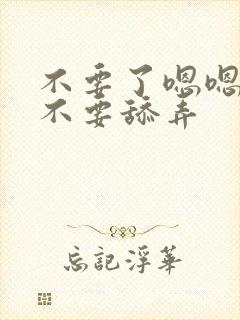 不要了嗯嗯
不要舔弄
忘记浮华